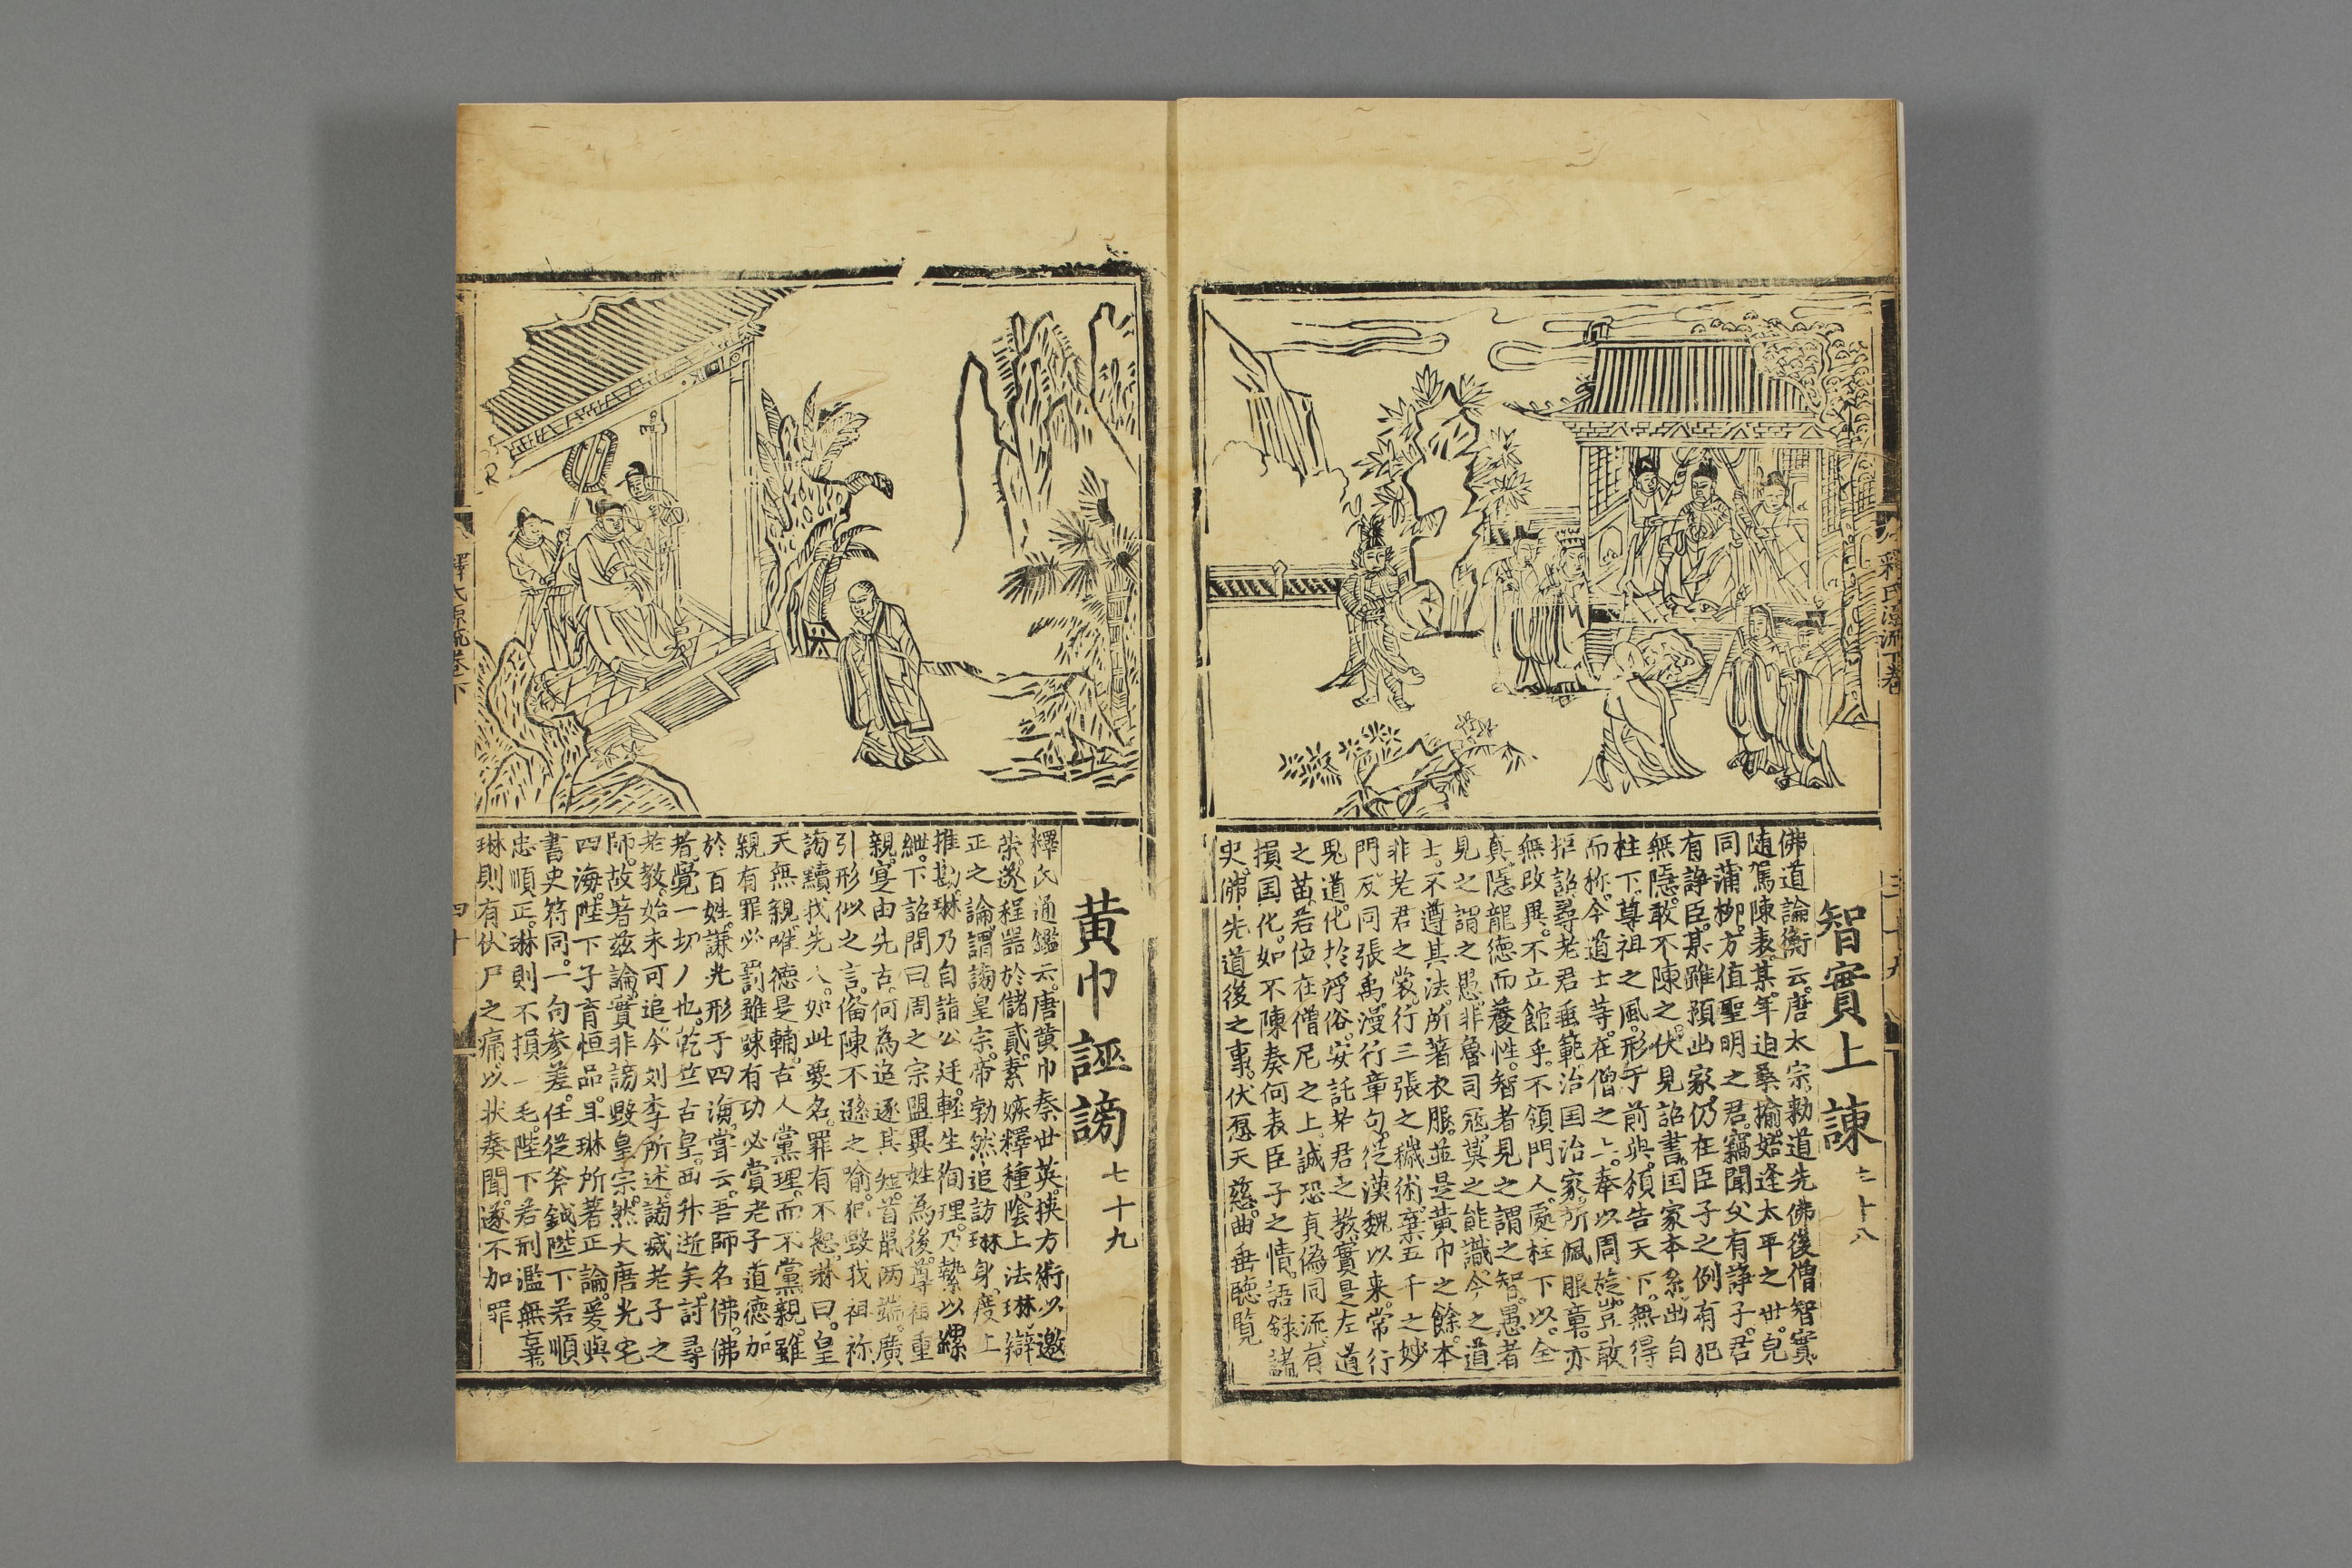 釋氏源流下卷
智實上諫
佛道論衡云唐太宗勅道先佛後僧智實
随駕陳表某年迫桑榆始逢太平之世皃
同蒲柳方值聖明之君竊聞父有諍子君
有諍臣某雖預出家仍在臣子之例有犯
無隱敢不陳之伏見詔書国家本系出自
柱下尊祖之風形于前典頒告天下無得
而称今道士等在僧之上奉以周旋豈敢
拒詔尋老君垂範治国治家所佩服章亦
無改異不立館乎不領門人處柱下以全
真隱龍德而養性智者見之謂之智愚者
見之謂之愚非魯司寇莫之能識今之道
士不遵其法所著衣服並是黃巾之餘本
非老君之裳行三張之穢術棄五千之妙
門反同張禹漫行章句從漢魏以来常行
鬼道化於浮俗妄託老君之教實是左道
之苗若位在僧尼之上誠恐真偽同流有
損国化如不陳奏何表臣子之情語録諸
史佛先道後之事伏愿天慈曲垂聴覧
黃巾誣謗 七十九
釋氏通鑑云唐黃巾秦世英挟方術以邀
榮遂程噐於儲貳素嫉釋種陰上法琳辯
正之論謂謗皇宗帝勃然追訪琳身度上
推勘琳乃自詣公廷軽生徇理乃縶以縲
紲下詔問曰周之宗盟異姓為後尊祖重
親寔由先古何為追逐其短首鼠両端廣
引形似之言俻陳不遜之喻犯毀我祖祢
謗黷我先人如此要名罪有不恕琳曰皇
天無親唯德是輔古人黨理而不黨親雖
親有罪必罰雖踈有功必賞老子道德加
於百姓謙光形于四海嘗云吾師名佛佛
者覺一切人也乾竺古皇西升逝矣討尋
老教始末可追今刘李所述謗臧老子之
師故著茲論實非謗毀皇宗然大唐光宅
四海陛下子育恒品且琳所著正論爰與
書史符同一句参差任從斧鉞陛下若順
忠順正琳則不損一毛陛下若刑濫無辜
琳則有伏尸之痛以状奏聞遂不加罪
釋氏源流卷下
四十